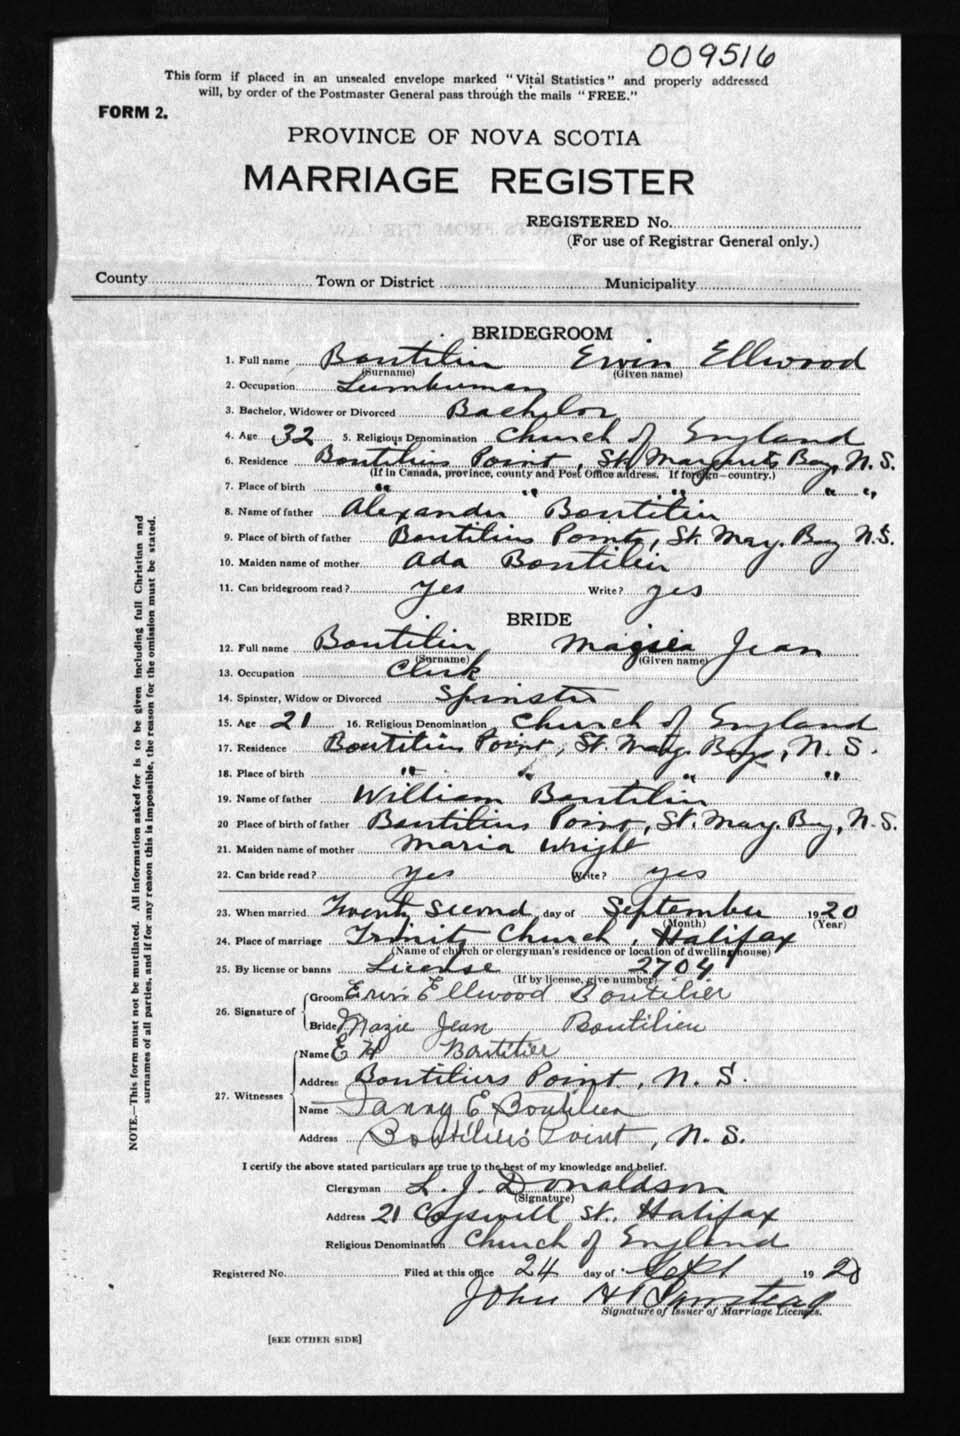 009516
This form if placed in an unsealed envelope marked "Vital Statistics" and properly addressed
will, by order of the Postmaster General pass through the mails "FREE."
FORM 2.
PROVINCE OF NOVA SCOTIA
MARRIAGE REGISTER
REGISTERED No.
(For use of Registrar General only.)
County Town or District Municipality
BRIDEGROOM
1. Full name Boutilier Erwin Ellwood
(Surname) (Given name)
2. Occupation Lumberman
3. Bachelor, Widower or Divorced Bachelor
4. Age 32 5. Religious Denomination Church of England
6. Residence Boutiliers Point, St. Margarets Bay, N.S.
(If in Canada, province, county and Post Office address. If foreign—country.)
7. Place of birth " " " " "
8. Name of father Alexander Boutilier
9. Place of birth of father Boutiliers Point, St. Marg. Bay N.S.
10. Maiden name of mother Ada Boutilier
11. Can bridegroom read? Yes Write? yes
BRIDE
12. Full name Boutilier Jean
(Surname) (Given name)
13. Occupation Clerk
14. Spinster, Widow or Divorced Spinster
15. Age 21 16. Religious Denomination Church of England
17. Residence Boutiliers Point, St. Marg. Bay, N.S.
18. Place of birth " " " "
19. Name of father William Boutilier
20 Place of birth of father Boutiliers Point, St. Marg. Bay, N.S.
21. Maiden name of mother Maria Wright
22. Can bride read? yes Write? yes
23. When married Twenty second day of September 1920
(Month) (Year)
24. Place of marriage Trinity Church, Halifax
(Name of church or clergyman's residence or location of dwelling house)
25. By license or banns License 2704
(If by license, give number)
26. Signature of
Groom Erwin Ellwood Boutilier
Bride Mazie Jean Boutilier
27. Witnesses
Name E H Boutilier
Address Boutiliers Point, N.S.
Name Fanny E Boutilier
Address Boutiliers Point, N.S.
I certify the above stated particulars are true to the best of my knowledge and belief.
Clergyman L. J. Donaldson
(Signature)
Address 21 Cogswell St., Halifax
Religious Denomination Church of England
Registered No. Filed at this office 24 day of Sept 1920
John H
Signature of Issuer of Marriage Licenses.
[SEE OTHER SIDE]
NOTE.—This form must not be mutilated. All information asked for is to be given including full Christian and
surnames of all parties, and if for any reason this is impossible, the reason for the omission must be stated.